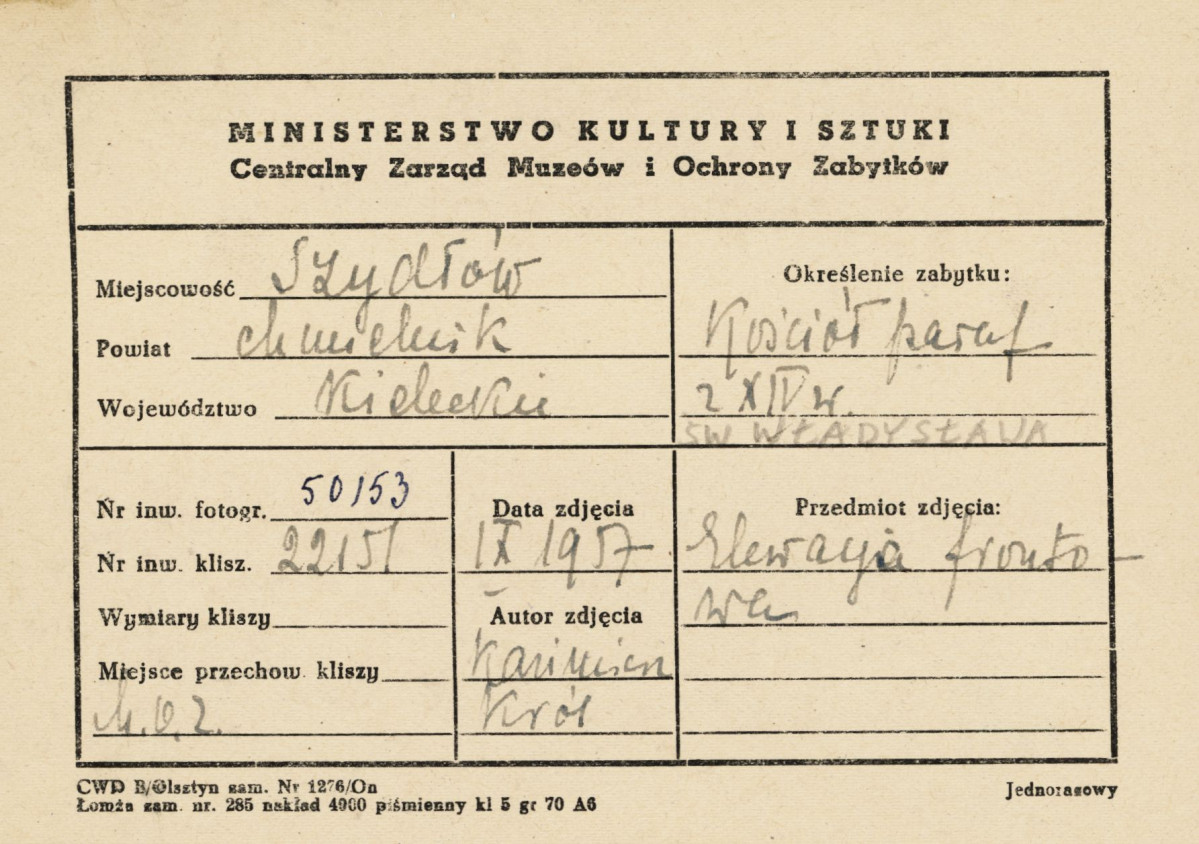 MINISTERSTWO KULTURY I SZTUKI
Centralny Zarząd Muzeów i Ochrony Zabytków
Miejscowość Szydłów
Powiat chmielnik
Województwo Kieleckie
Określenie zabytku:
Kościół paraf
z XIV w.
ŚW WŁADYSŁAWA
Nr inw. fotogr. 50153
Nr inw. klisz. 22151
Wymiary kliszy
Miejsce przechow. kliszy
M.O.Z.
Data zdjęcia
IX 1957
Autor zdjęcia
Kazimierz
Król
Przedmiot zdjęcia:
Elewacja fronto-
wa
CWD B/Olsztyn zam. Nr 1276/On
Łomża zam. nr. 285 nakład 4900 piśmienny kl 5 gr 70 A6
Jednorazowy